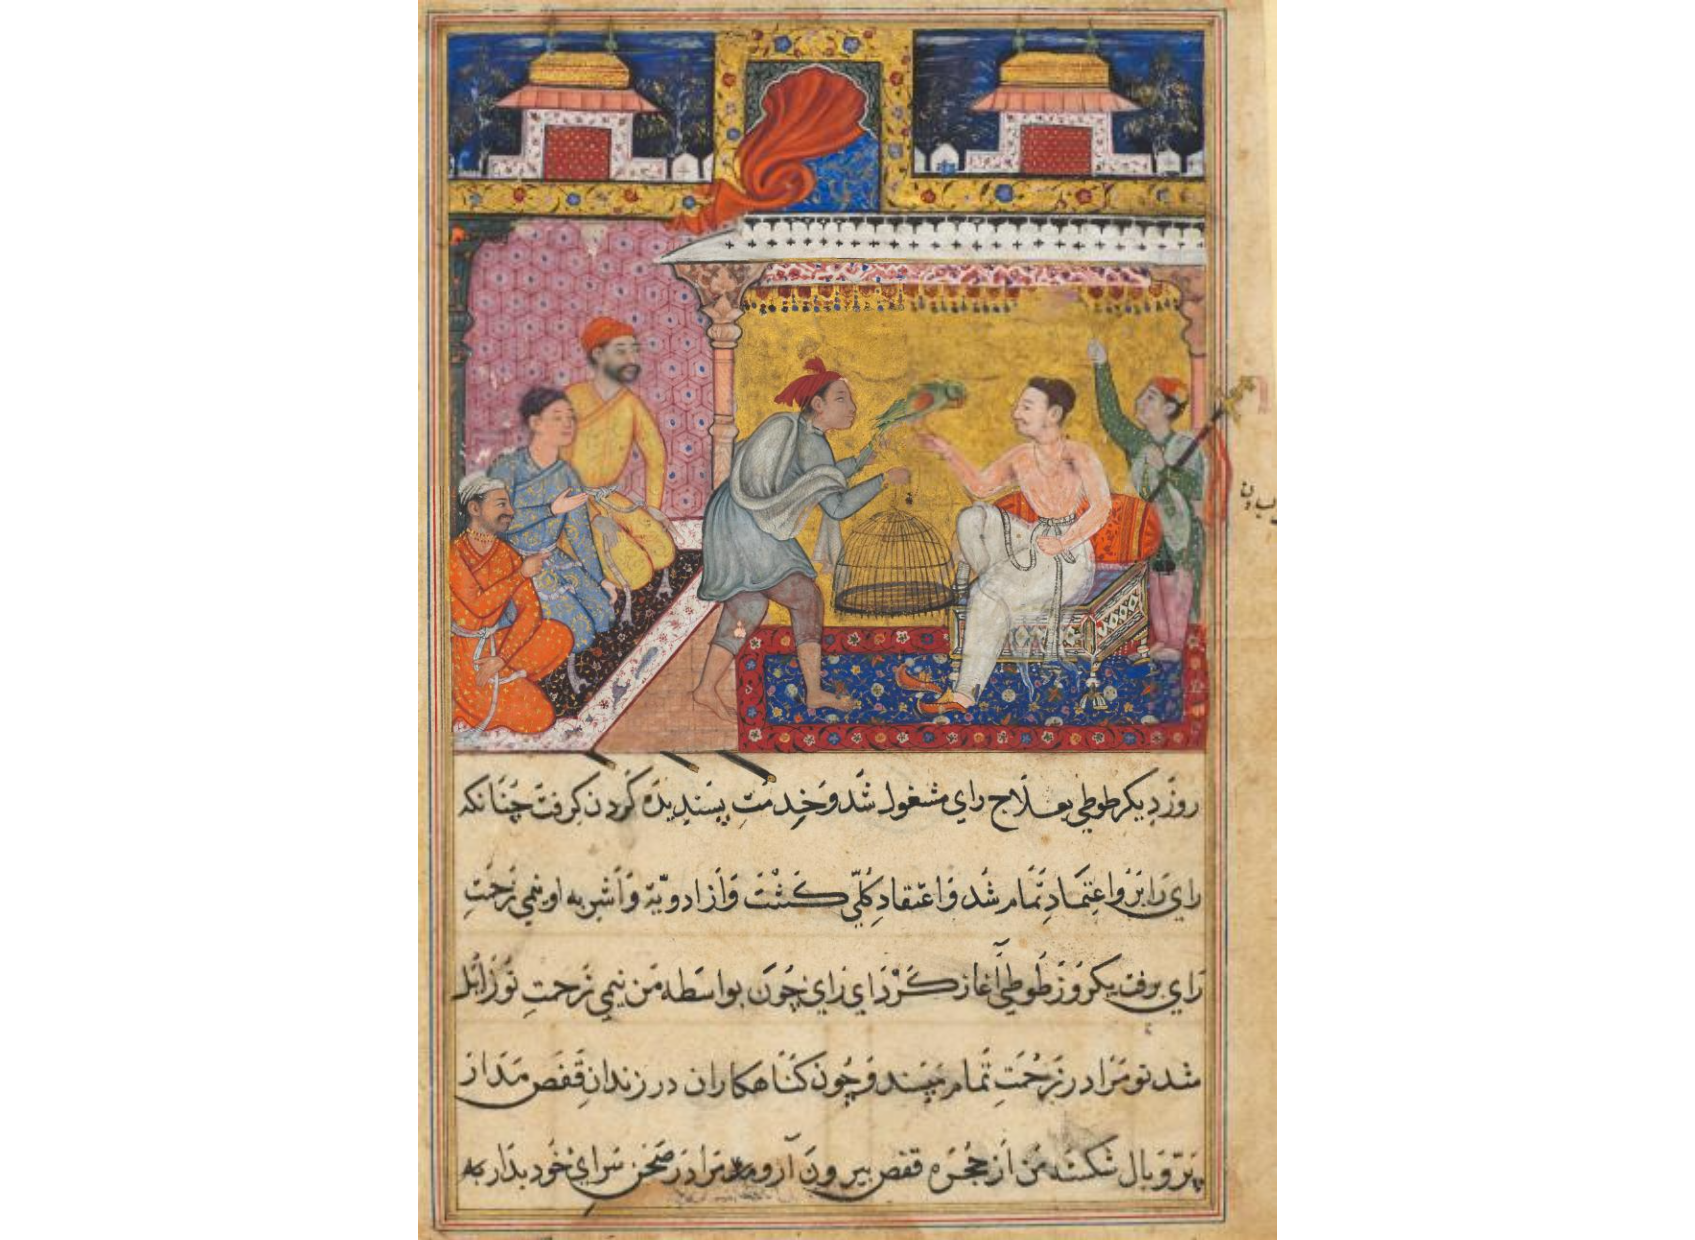 روز دیکر طوطی بعلاج رای مشغول شد و خدمت پسندیده کردن کرفت چنانکه
رای را برو اعتماد تمام شد و اعتقاد کلی کشت و از ادویه و اشربه او نیمی زحمت
رای برفت یکروز طوطی آغاز کرد ای رای چون بواسطه من نیمی زحمت تو زایل
شد تو مرا در زحمت تمام مپسند و چون کناهکاران در زندان قفص مدار
پر و بال شکسته من از حجره قفص بیرون آر و مرا در صحن سرای خود بدار